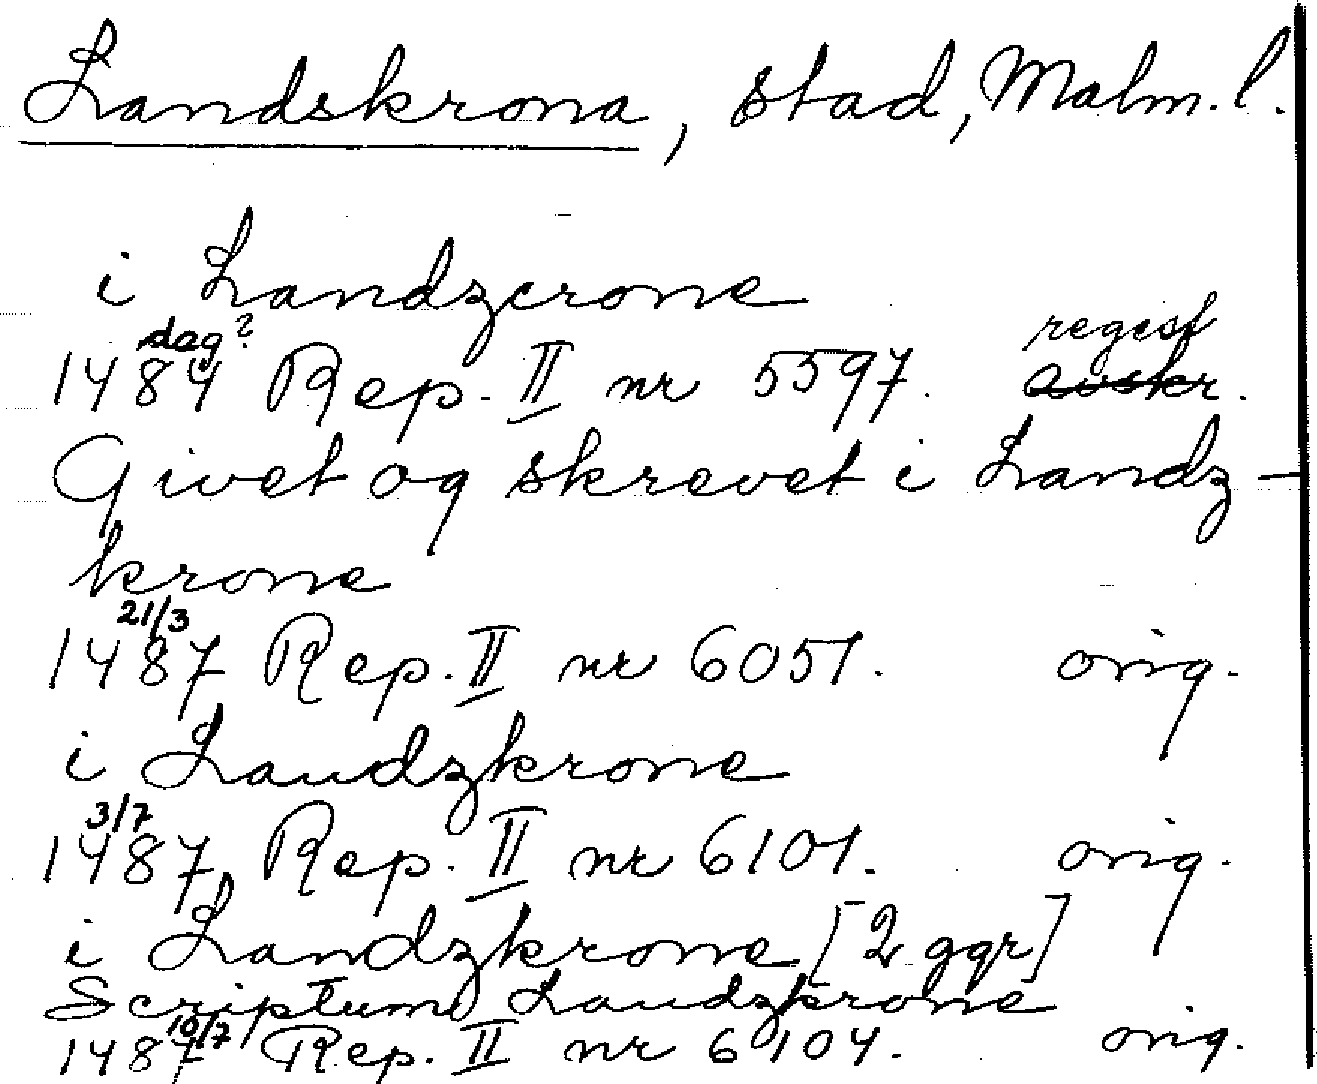 Landskrona, stad, Malm. l.
i Landzcrone
dag? regest
1484 Rep. II nr 5597. avskr.
Givet og skrevet i Landz-
krone
21/3
1487 Rep. II nr 6051. orig.
i Landzkrone
3/7
1487 Rep. II nr 6101. orig.
i Landzkrone [2 ggr]
Scriptum Landzkrone
10/7
1487 Rep. II nr 6104. orig.